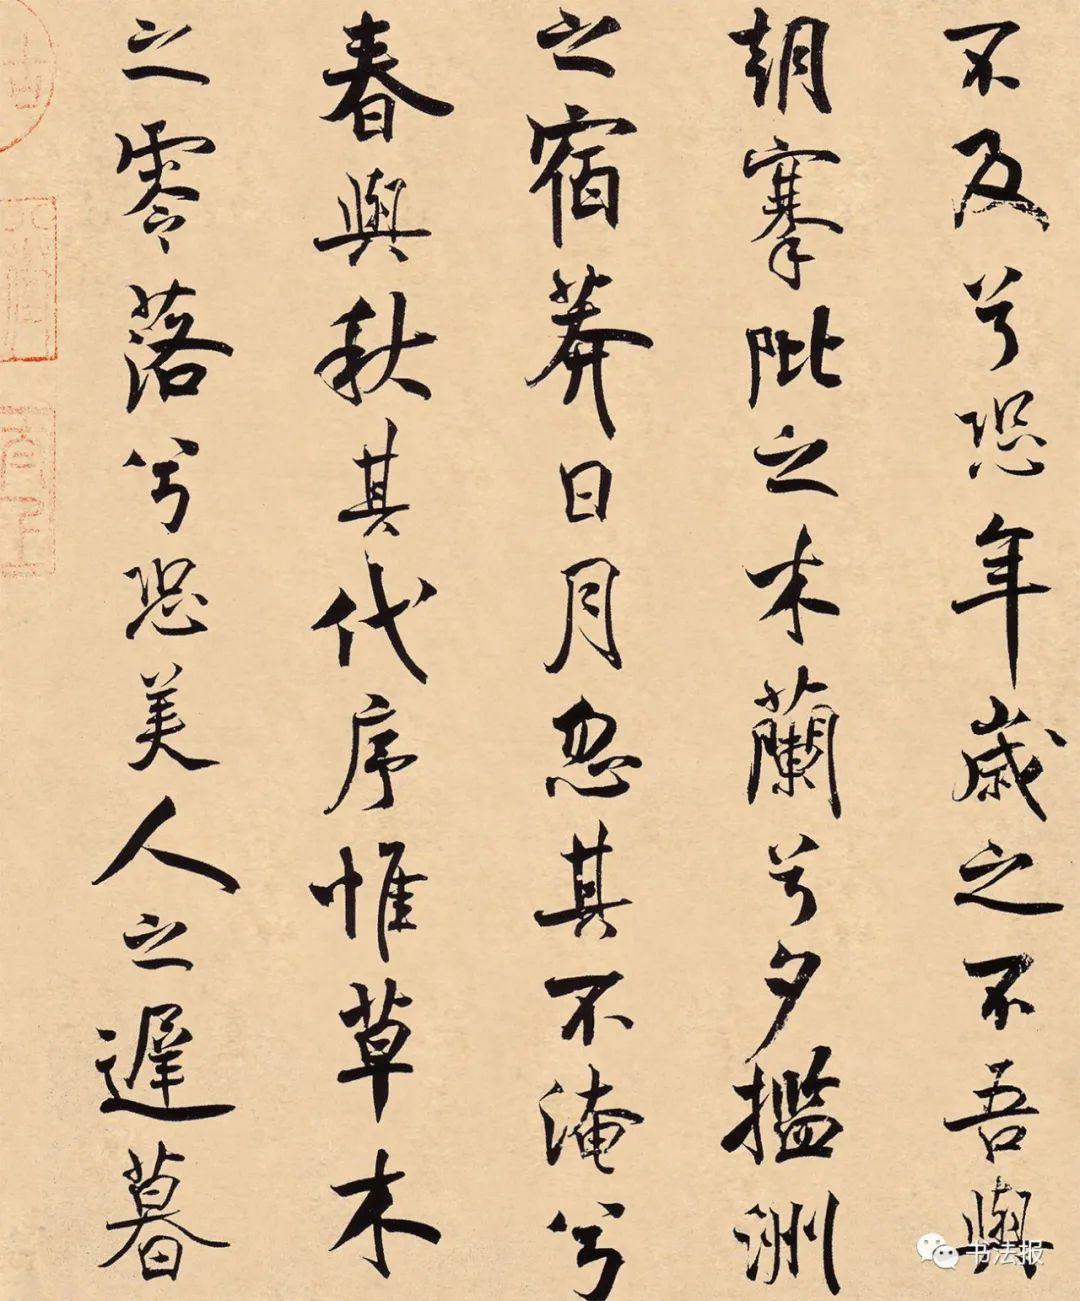 不及兮恐年歲之不吾與
朝搴阰之木蘭兮夕擥洲
之宿莽日月忽其不淹兮
春與秋其代序惟草木
之零落兮恐美人之遲暮
书法报